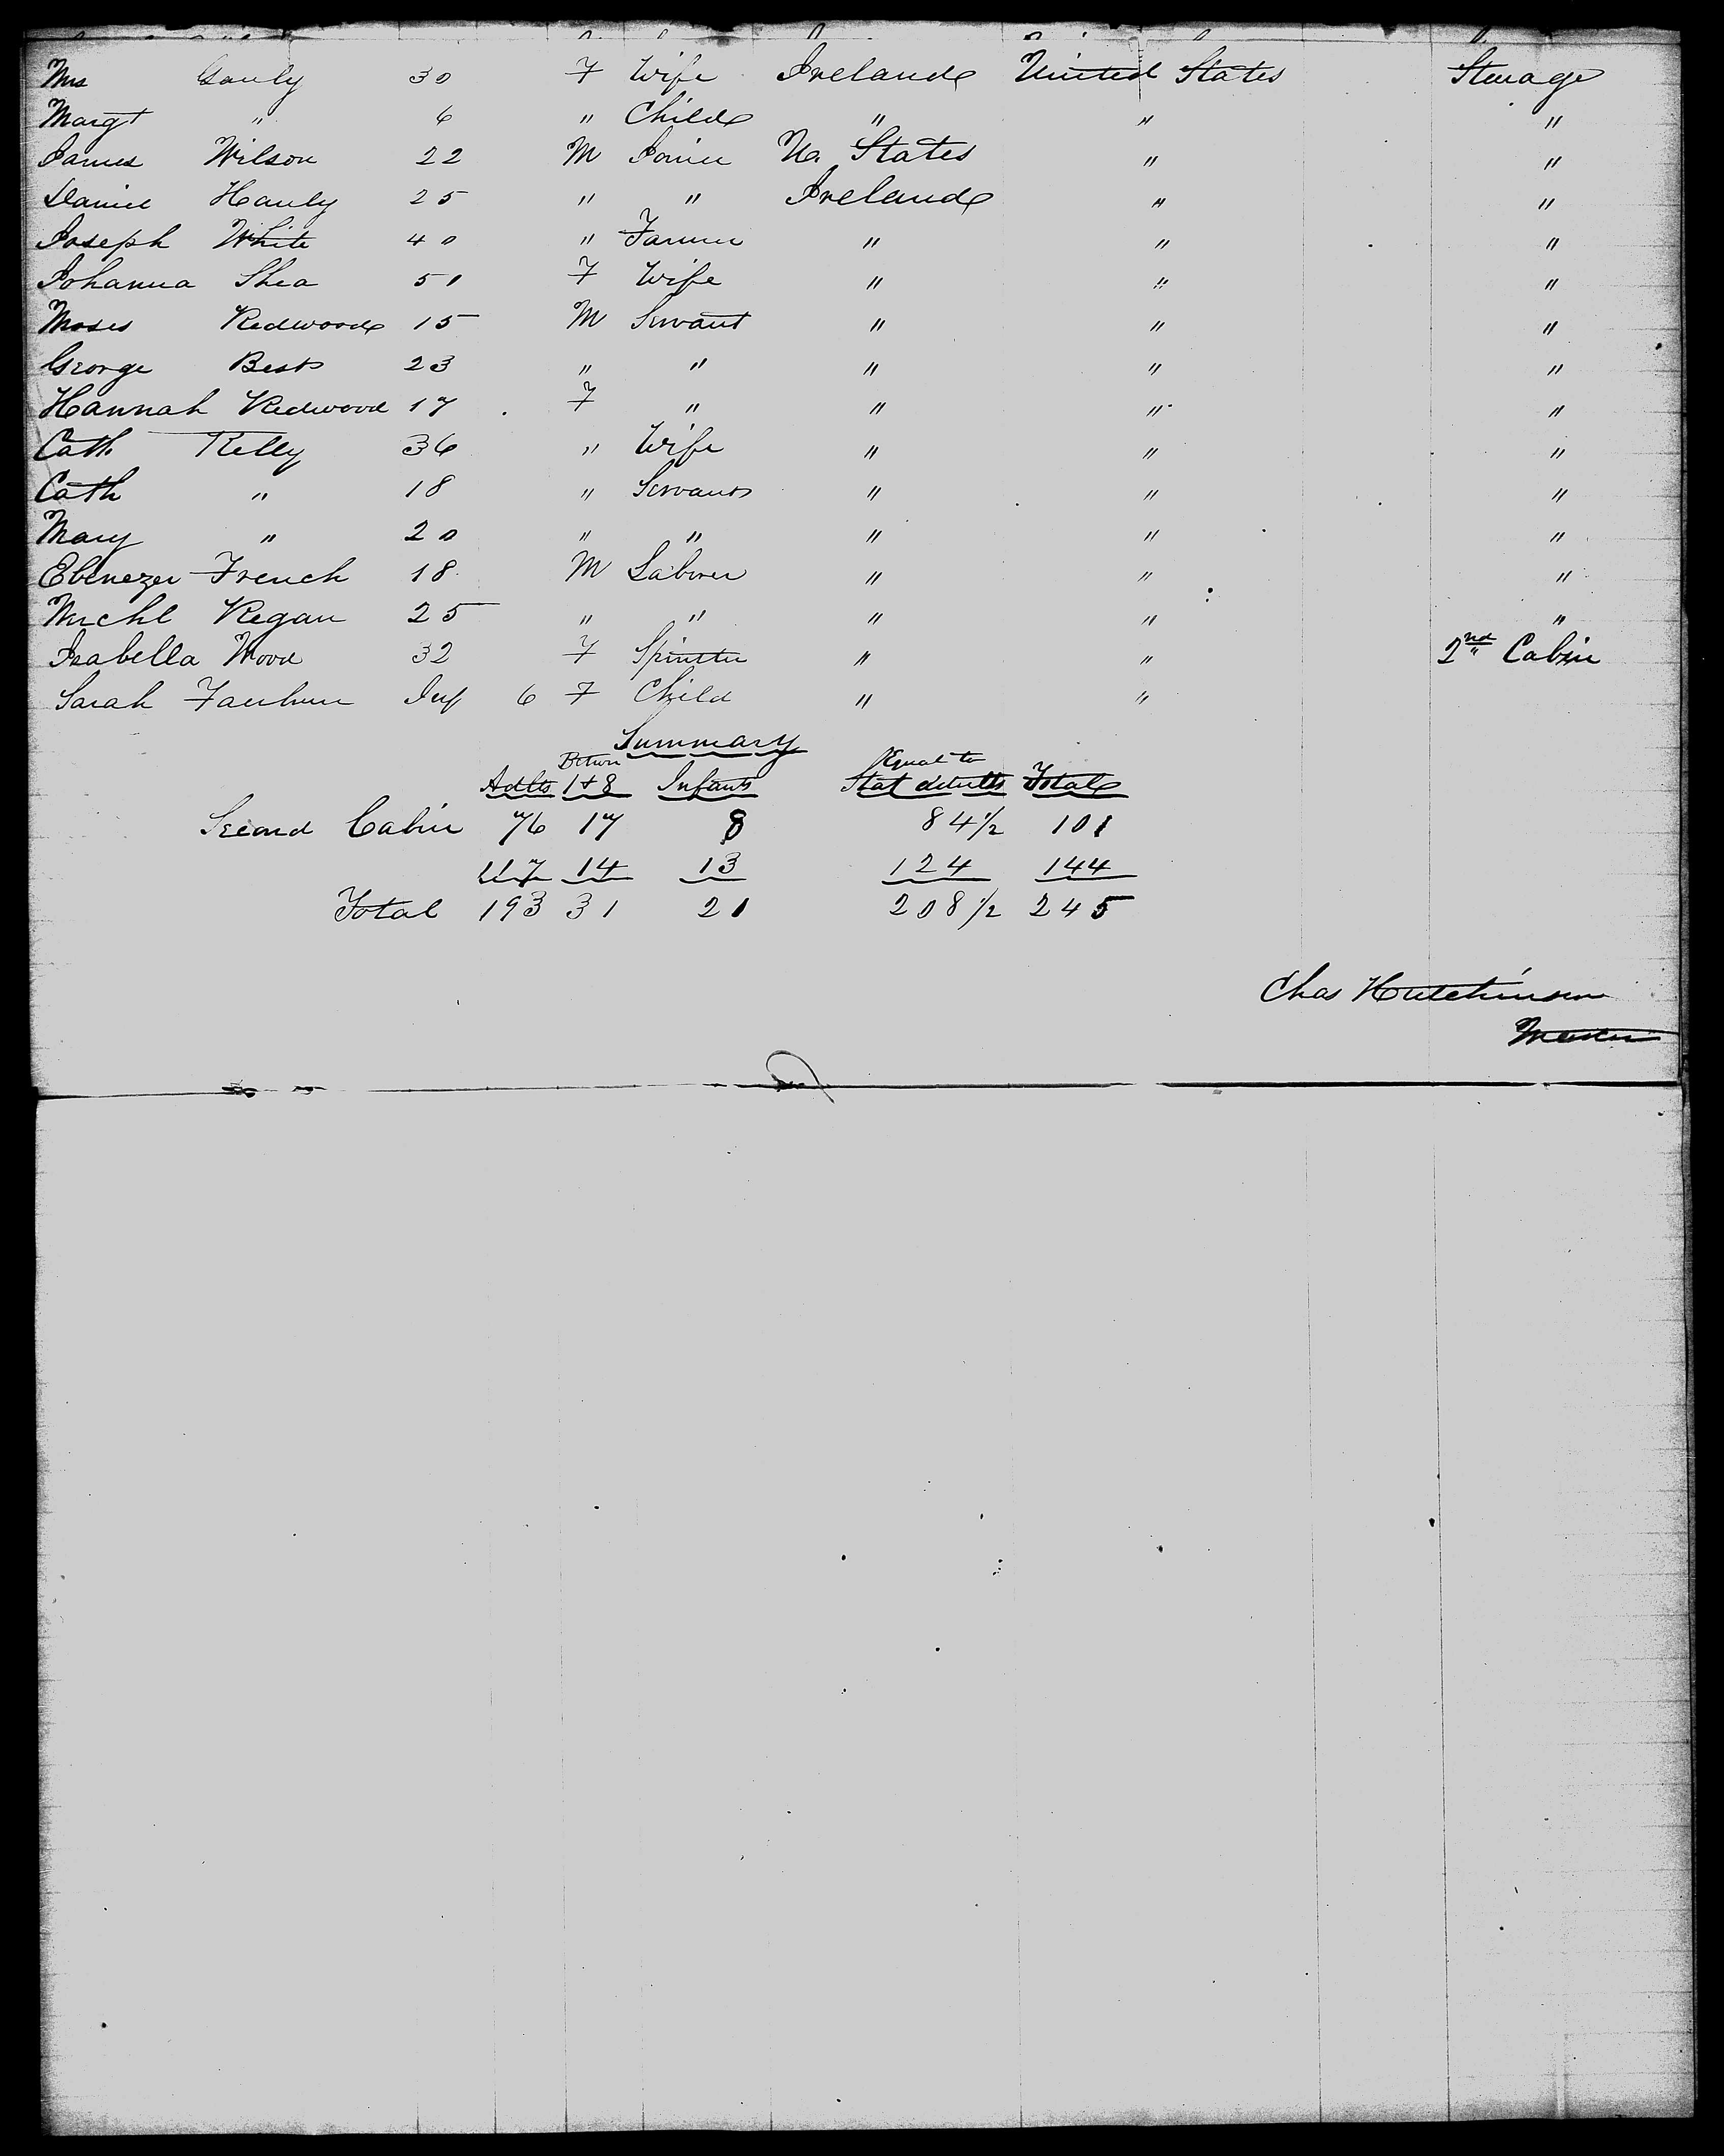 Mrs Gauly 30 F Wife Ireland United States Steerage
Margt " 6 " Child " " "
James Wilson 22 M Joiner U. States " "
Daniel Hauly 25 " " Ireland " "
Joseph White 40 " Farmer " " "
Johanna Shea 50 F Wife " " "
Moses Redwood 15 M Servant " " "
George Best 23 " " " " "
Hannah Redwood 17 F " " " "
Cath Kelly 36 " Wife " " "
Cath " 18 " Servant " " "
Mary " 20 " " " " "
Ebenezer French 18 M Laborer " " "
Michl Regan 25 " " " " "
Isabella Wood 32 F Spinster " " 2nd Cabin
Sarah Inf 6 F Child " "
Summary
Adlts Betwn 1 & 8 Infants Equal to Stat adults Total
Second Cabin 76 17 8 84 1/2 101
117 14 13 124 144
Total 193 31 21 208 1/2 245
Chas Hutchinson
Master